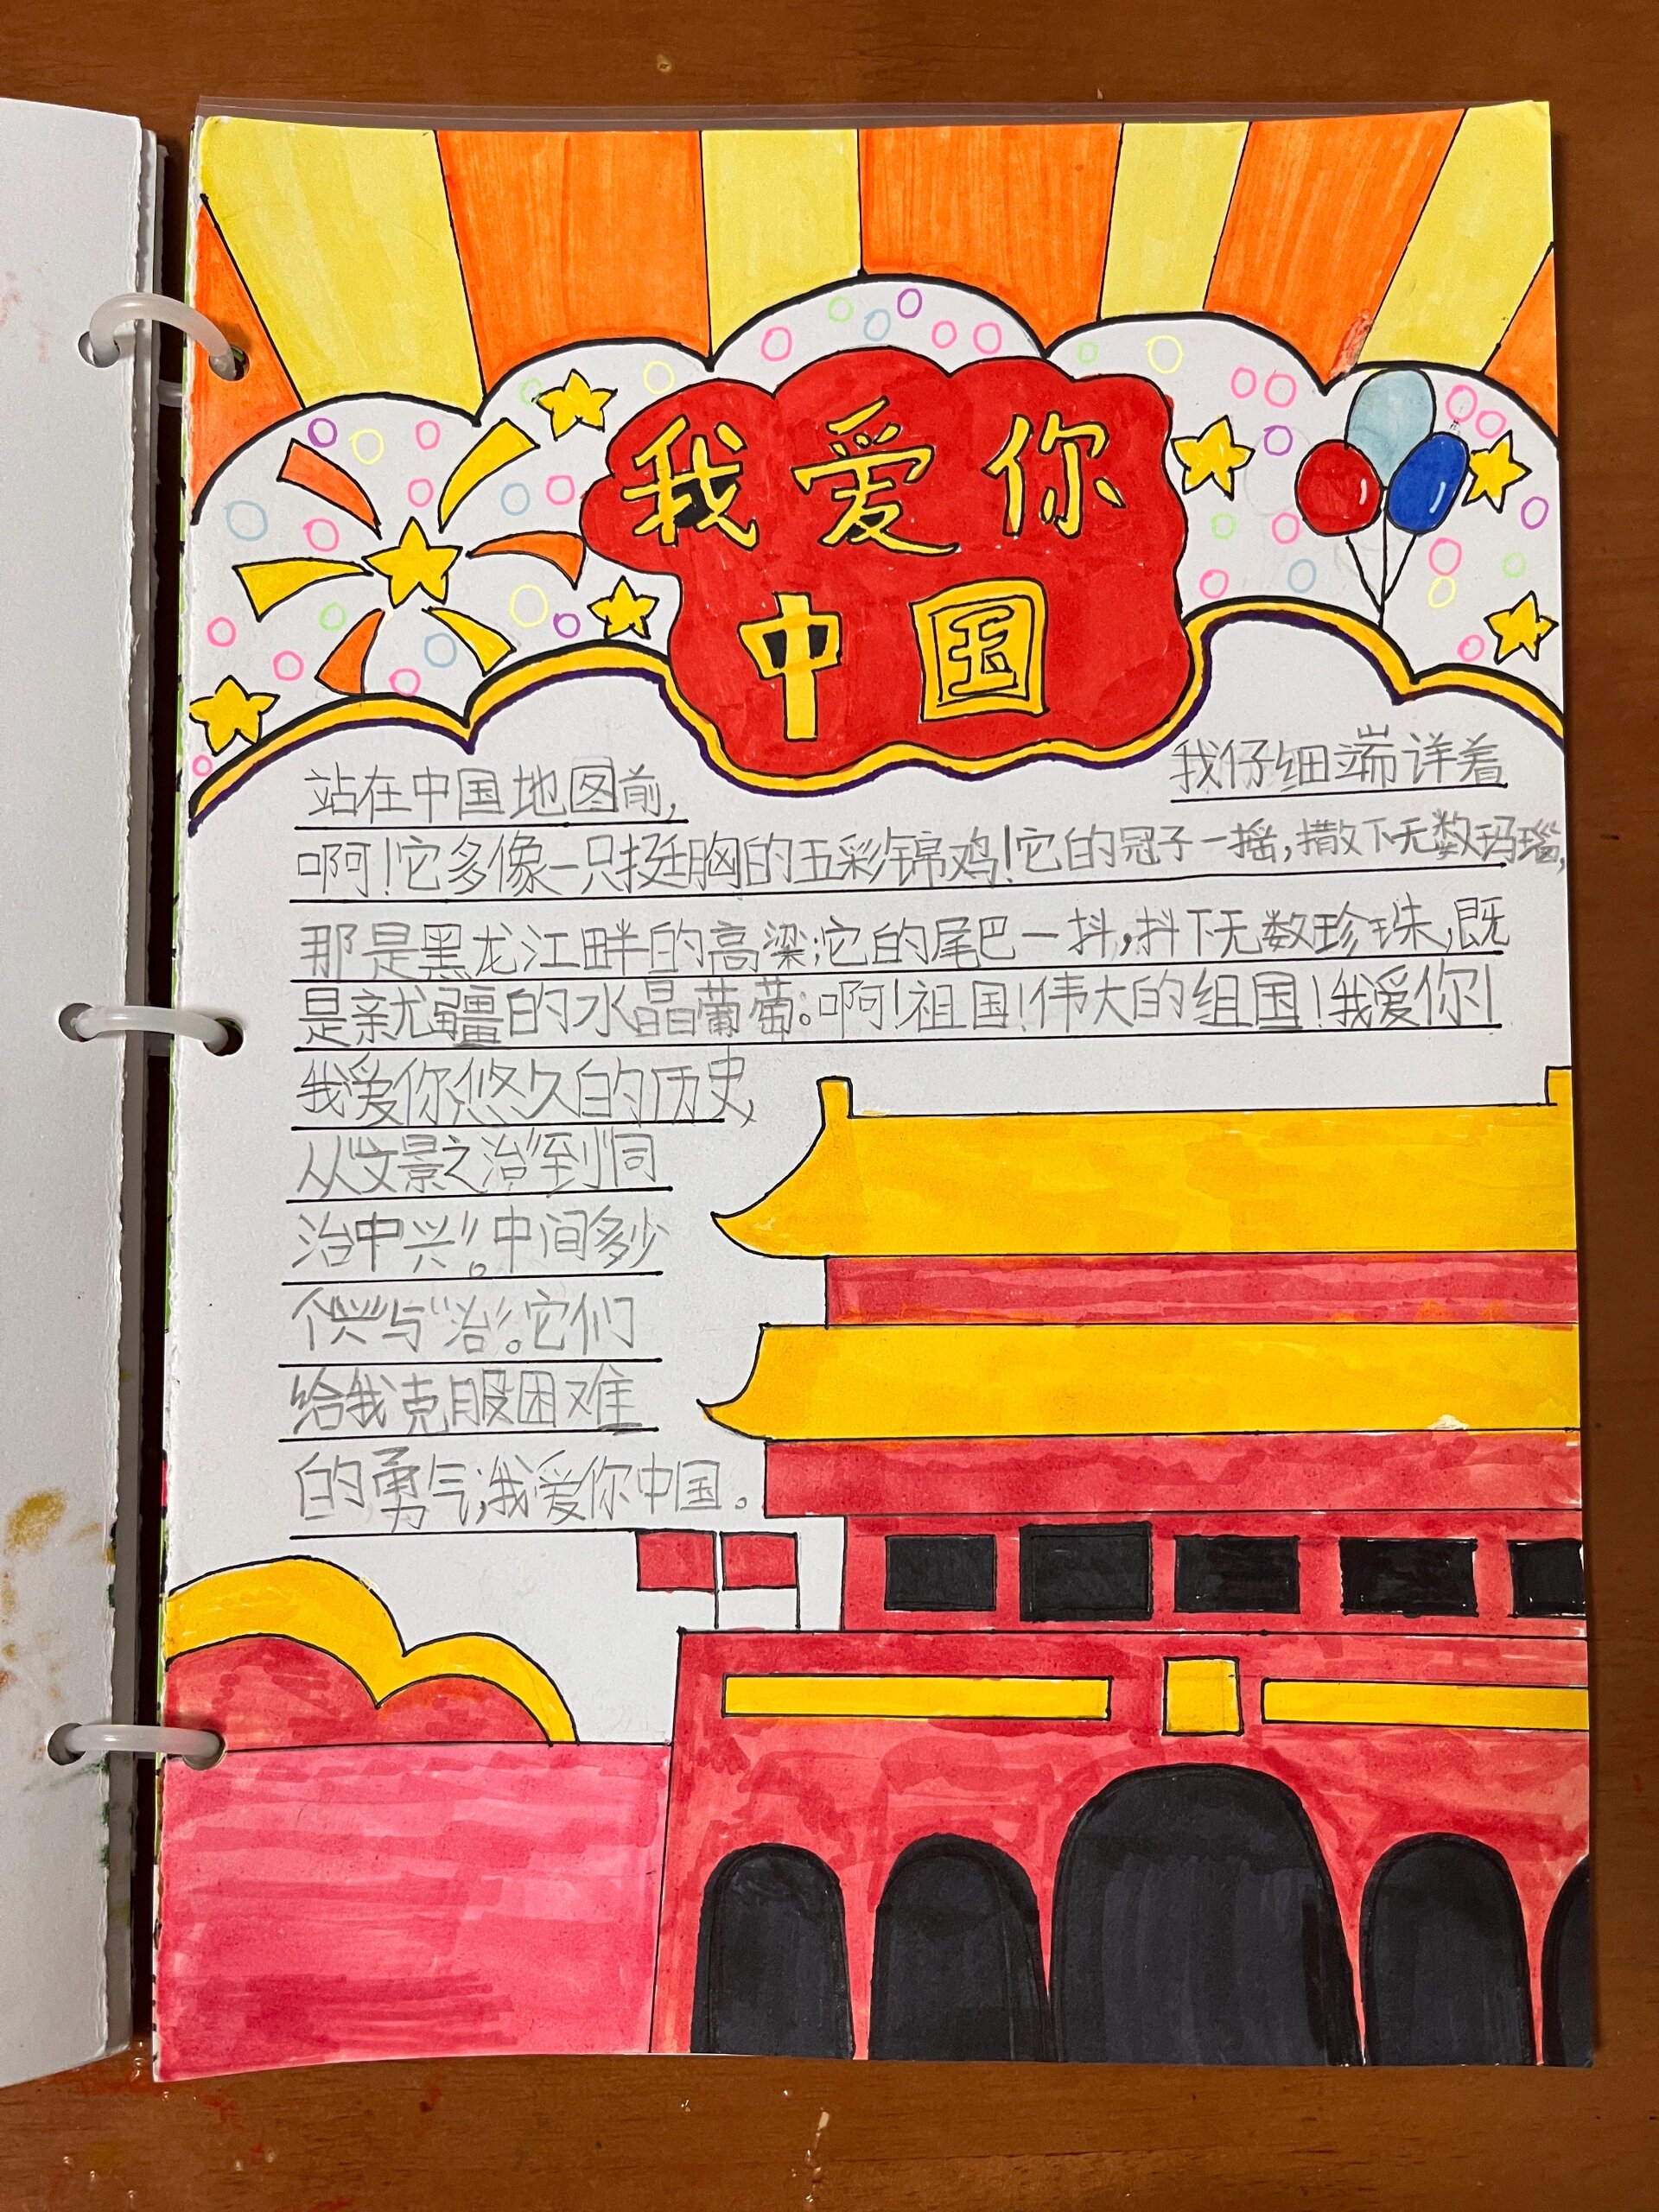 我爱你
中国
站在中国地图前，我仔细端详着
啊！它多像一只挺胸的五彩锦鸡！它的冠子一摇，撒下无数玛瑙，
那是黑龙江畔的高粱；它的尾巴一抖，抖下无数珍珠，既
是新疆的水晶葡萄。啊！祖国！伟大的组国！我爱你！
我爱你悠久的历史，
从“文景之治”到“同
治中兴”。中间多少
个“兴”与“治”。它们
给我克服困难
的勇气，我爱你中国。